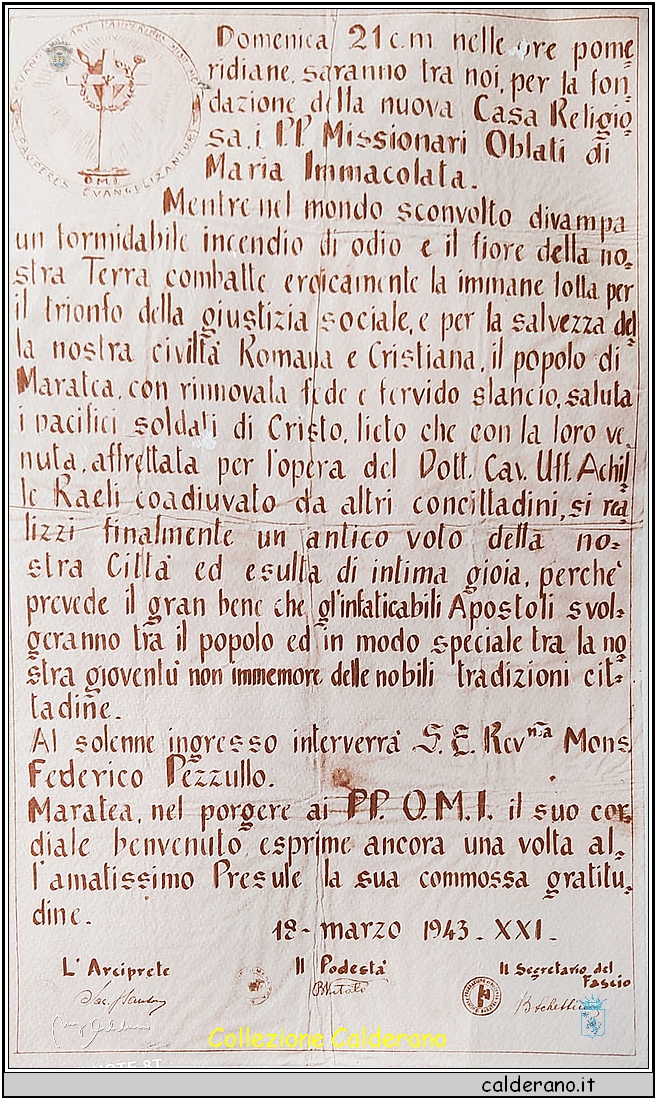 Domenica 21 c.m. nelle ore pome
ridiane, saranno tra noi, per la fon_
dazione della nuova Casa Religio_
sa, i PP. Missionari Oblati di
Maria Immacolata.
PAUPERES EVANGELIZANTUR
O.M.I.
Mentre nel mondo sconvolto divampa
un formidabile incendio di odio e il fiore della no=
stra Terra combatte eroicamente la immane lotta per
il trionfo della giustizia sociale, e per la salvezza del
la nostra civiltà Romana e Cristiana, il popolo di
Maratea, con rinnovata fede e fervido slancio, saluta
i pacifici soldati di Cristo, lieto che con la loro ve_
nuta, affrettata per l'opera del Dott. Cav. Uff. Achil_
le Raeli coadiuvato da altri concittadini, si rea_
lizzi finalmente un antico voto della no=
stra Città ed esulta di intima gioia, perchè
prevede il gran bene che gl'infaticabili Apostoli svol=
geranno tra il popolo ed in modo speciale tra la no
stra gioventù non immemore delle nobili tradizioni cit=
tadine.
Al solenne ingresso interverrà S. E. Rev.ma Mons.
Federico Pezzullo.
Maratea, nel porgere ai PP. O.M.I. il suo cor_
diale benvenuto, esprime ancora una volta al_
l'amatissimo Presule la sua commossa gratitu_
dine.
18 - marzo 1943 - XXI.
L'Arciprete
Il Podestà
Il Segretario del
Fascio
Collezione Calderano
calderano.it